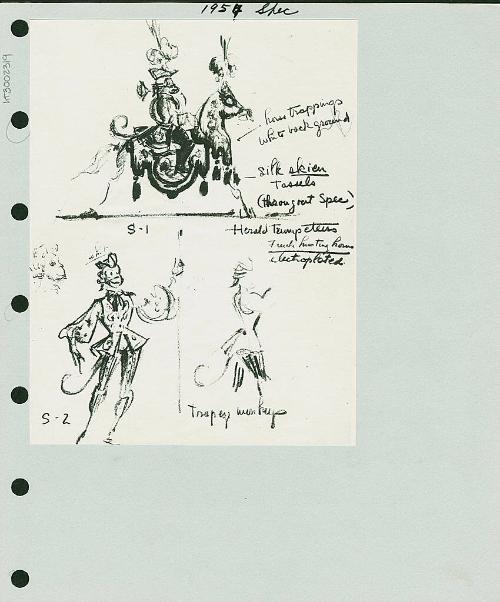 1954 Spec
HT3002319
horse trappings
white background
silk skien
Tassels
(throughout Spec)
S-1
Herald Trumpeters
French hunting horns
electroplated
S-2
Trapeze monkeys